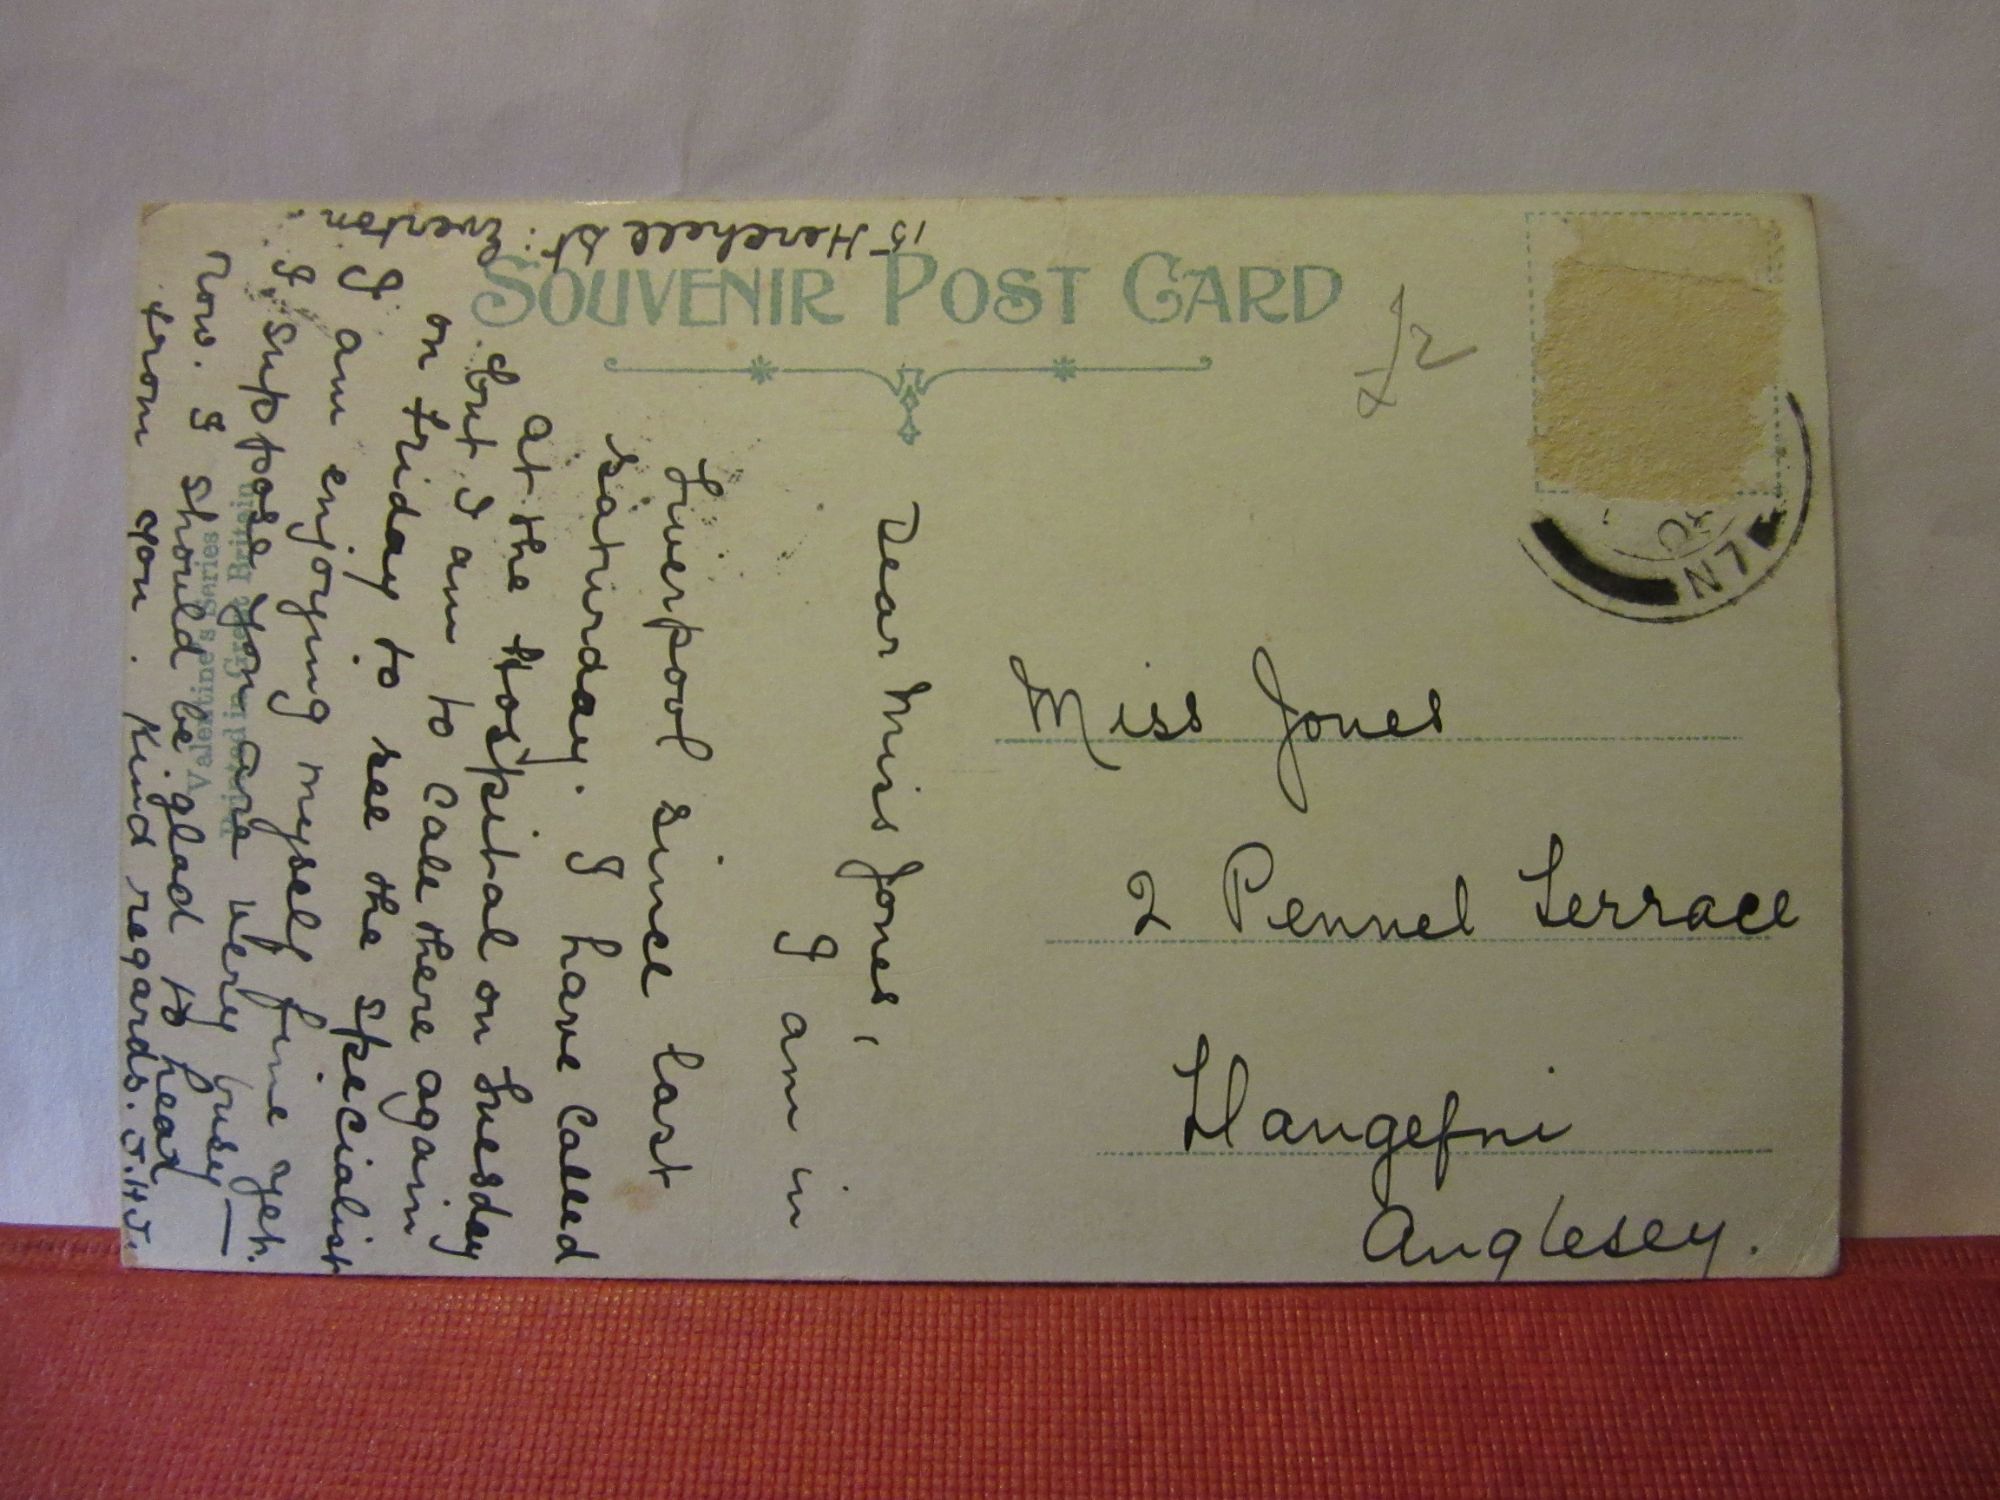 SOUVENIR POST CARD
15 Herchell St. Everton.
Dear Miss Jones,
I am in
Liverpool since last
Saturday. I have called
at the Hospital on Tuesday
but I am to call there again
on Friday to see the specialist
I am enjoying myself fine yet.
I suppose you are very busy—
now. I should be glad to hear
from you. Kind regards. J.H.J.
Valentine's Series
Printed in Great Britain
£/2
LN7
Miss Jones
2 Pennel Terrace
Llangefni
Anglesey.